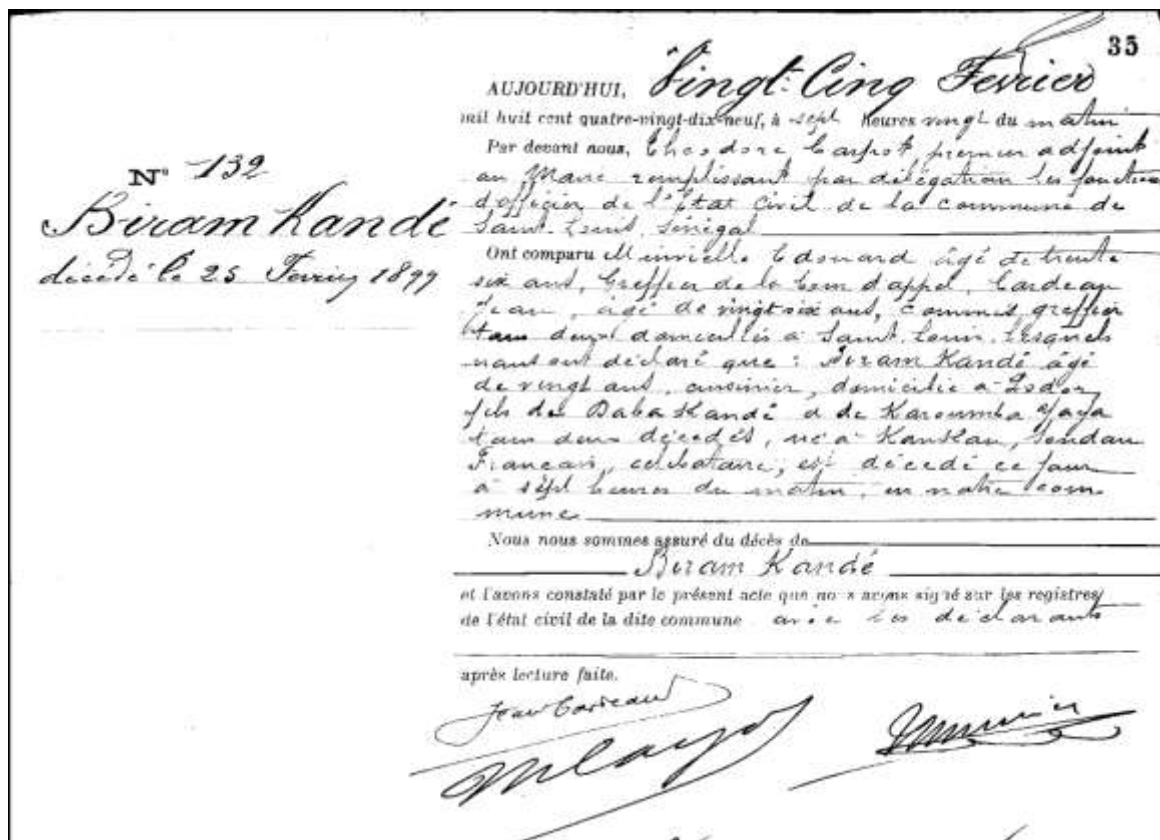 35
N° 132
Biram Kandé
décédé le 25 Fevrier 1899
AUJOURD'HUI, Vingt-Cinq Fevrier
mil huit cent quatre-vingt-dix-neuf, à sept heures vingt du matin
Par devant nous, Theodore Carpot, premier adjoint
au Maire remplissant par délégation les fonctions
d'officier de l'Etat Civil de la commune de
Saint-Louis, Sénégal
Ont comparu Minvielle Edouard âgé de trente
six ans, Greffier de la Cour d'appel, Cardeau
Jean, âgé de vingt six ans, commis greffier
tous deux domiciliés à Saint-Louis, lesquels
nous ont déclaré que : Biram Kandé âgé
de vingt ans, cuisinier, domicilié à Podor,
fils de Baba Kandé et de Karoumba Yaya
tous deux décédés, né à Kankan, Soudan
Français, celibataire, est décédé ce jour
à sept heures du matin, en notre com-
mune
Nous nous sommes assuré du décès de
Biram Kandé
et l'avons constaté par le présent acte que nous avons signé sur les registres
de l'état civil de la dite commune avec les déclarants
après lecture faite.
Jean Cardeau